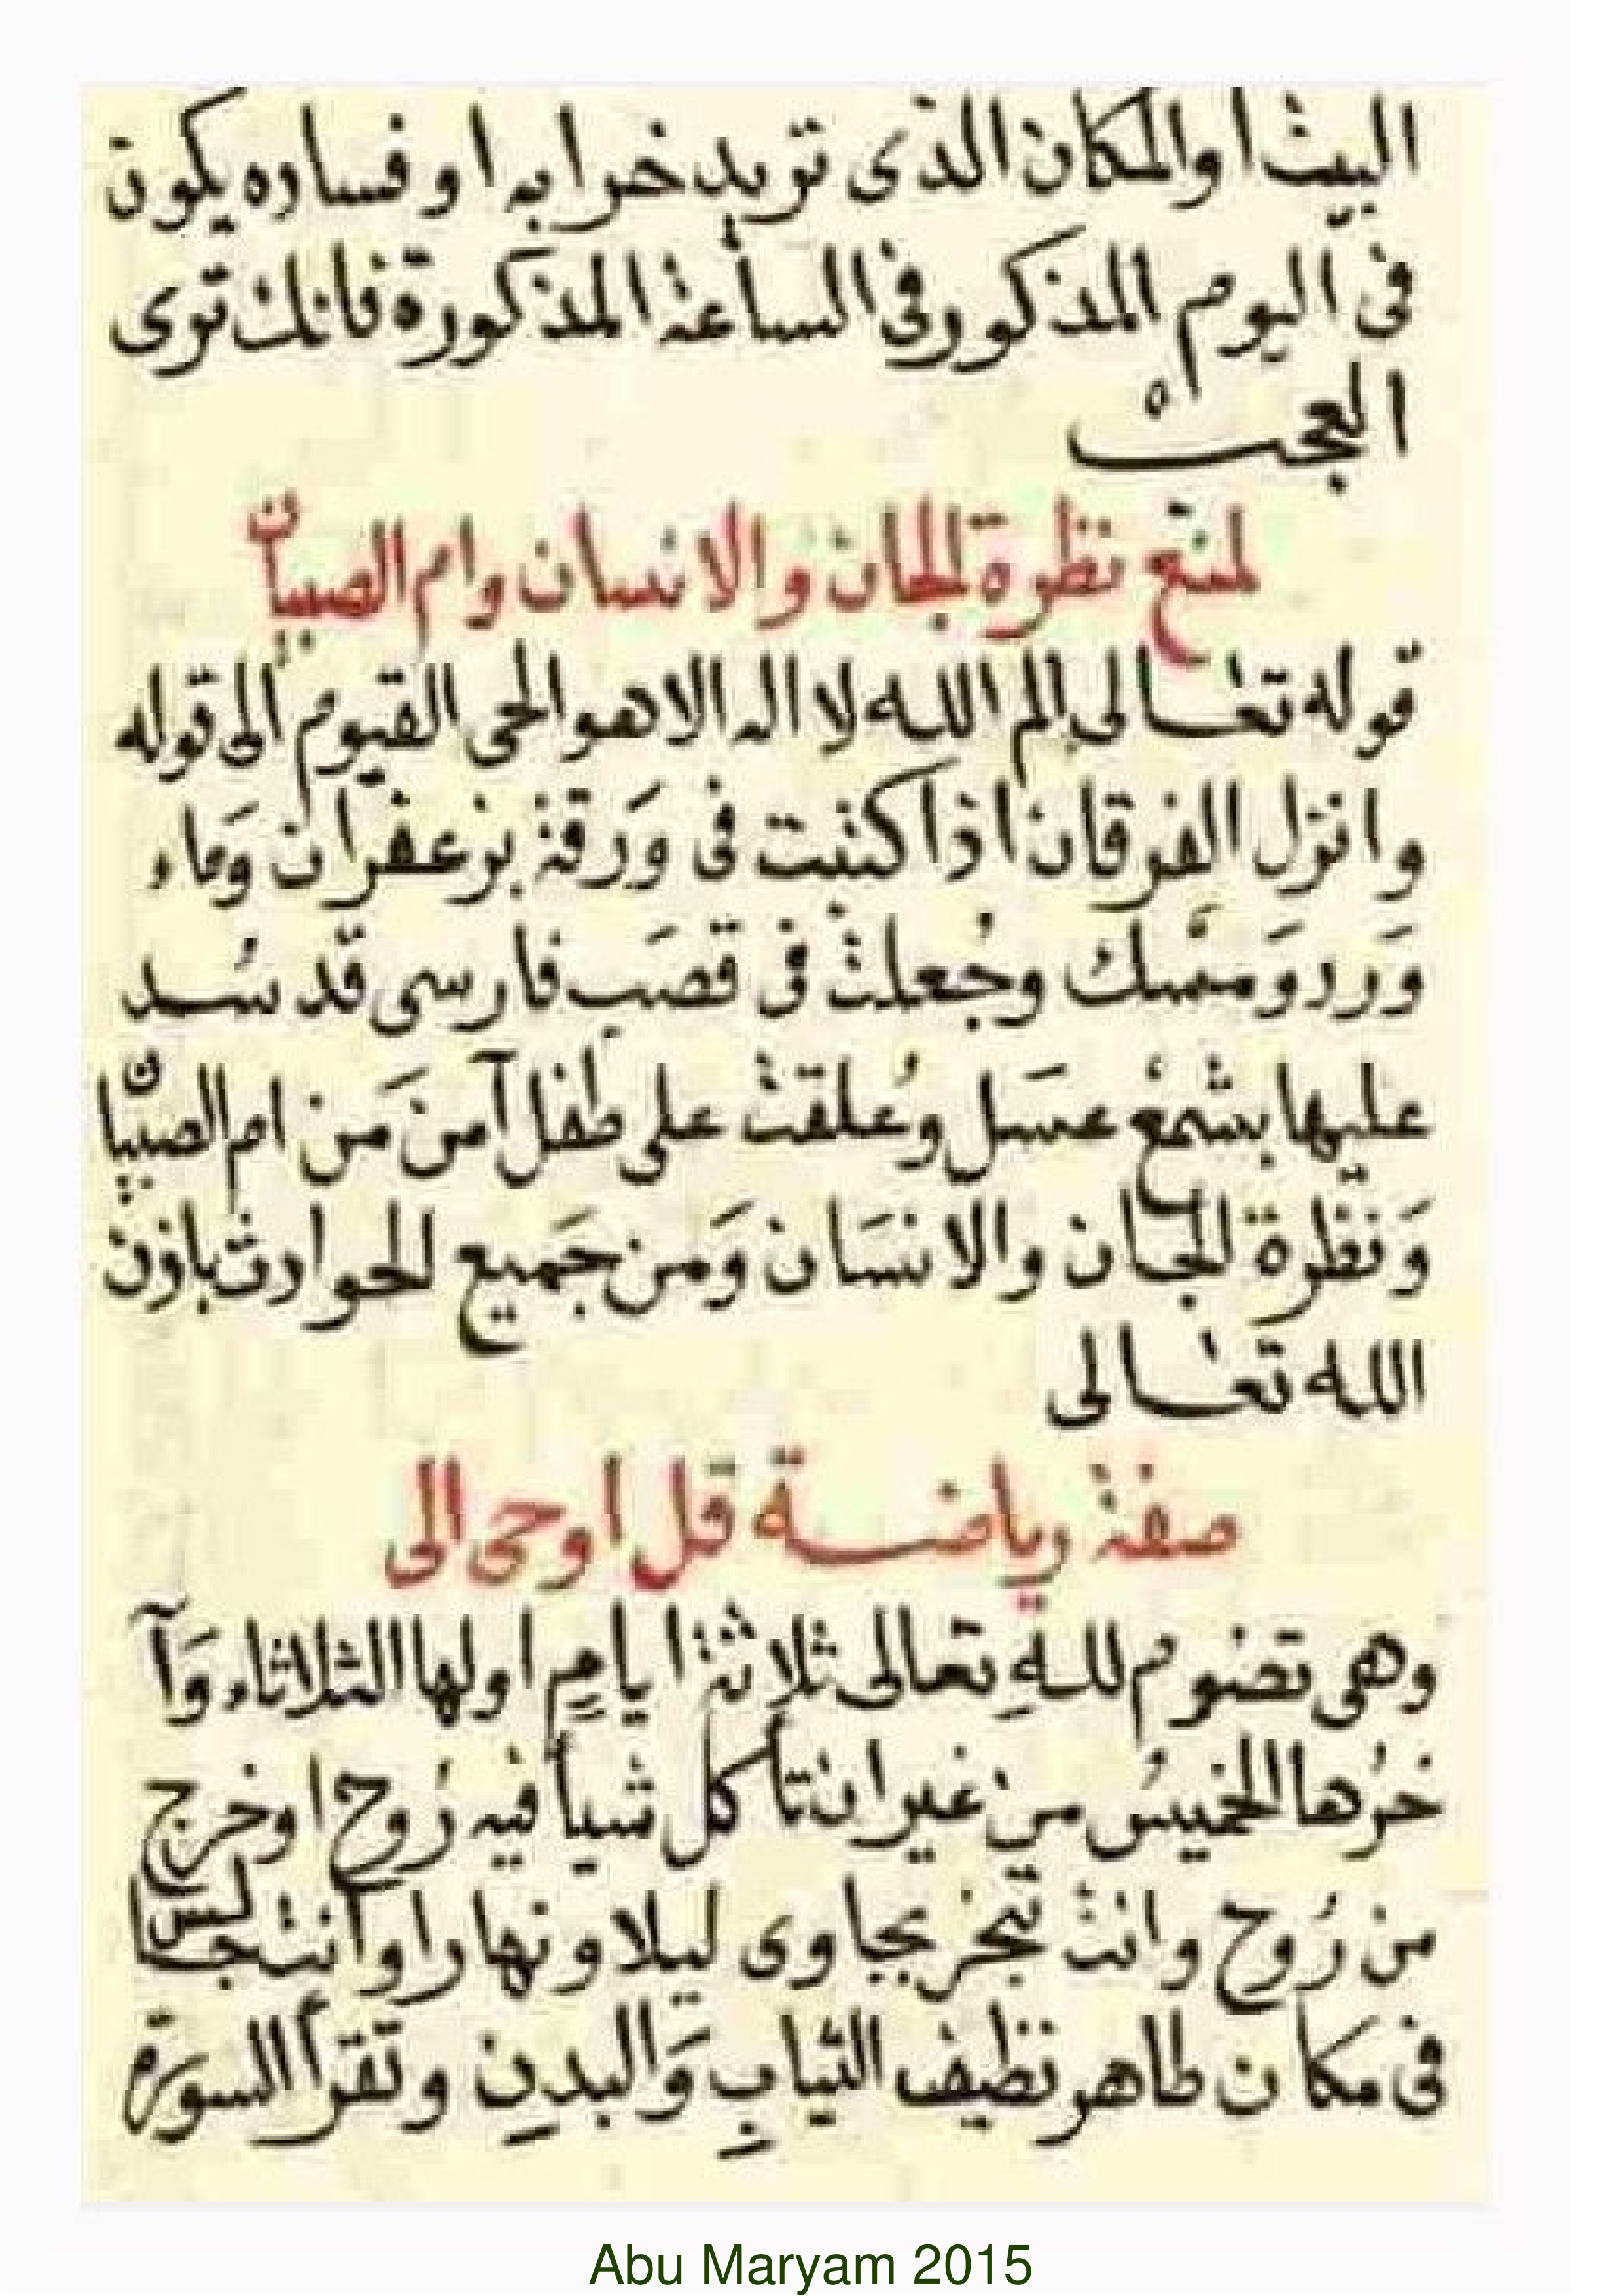 البيث او المكان الذى تريد خرابه او فساده يكون
فى اليوم المذكور وفى الساعة المذكورة فانك ترى
العجب ه
لمنع نظرة الجان والانسان وام الصبيان
قوله تعالى الم الله لا اله الا هو الحى القيوم الى قوله
وانزل الفرقان اذا كتبت فى وَرقة بزعفران وَماء
وَرد وَمسك وجُعلت فى قصَب فارسى قد سُد
عليها بشمع عسَل وعُلقت على طفل آمنَ مَن ام الصبيان
وَنظرة للجان والانسَان وَمن جَميع للحوادث باذن
الله تعالى
صفة رياضة قل اوحى الى
وهى تصوم للهِ تعالى ثلاثة ايامٍ اولها الثلاثاء وَآ
خرُها الخميسُ من غير ان تأكل شيأ فيه رُوح او خرج
من رُوح وانت تبخر بجاوى ليلا ونهارا وانت جالس
فى مَكان طاهر نظيف الثيابِ وَالبدنِ وتقرأ السورة
Abu Maryam 2015